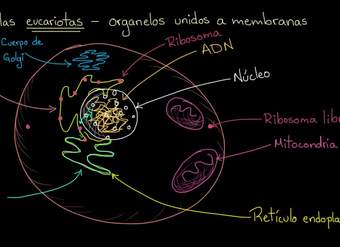 las eucariotas – organelos unidos a membranas
Cuerpo de
Golgi
Ribosoma
ADN
Núcleo
Ribosoma
Mitocondria
Retículo